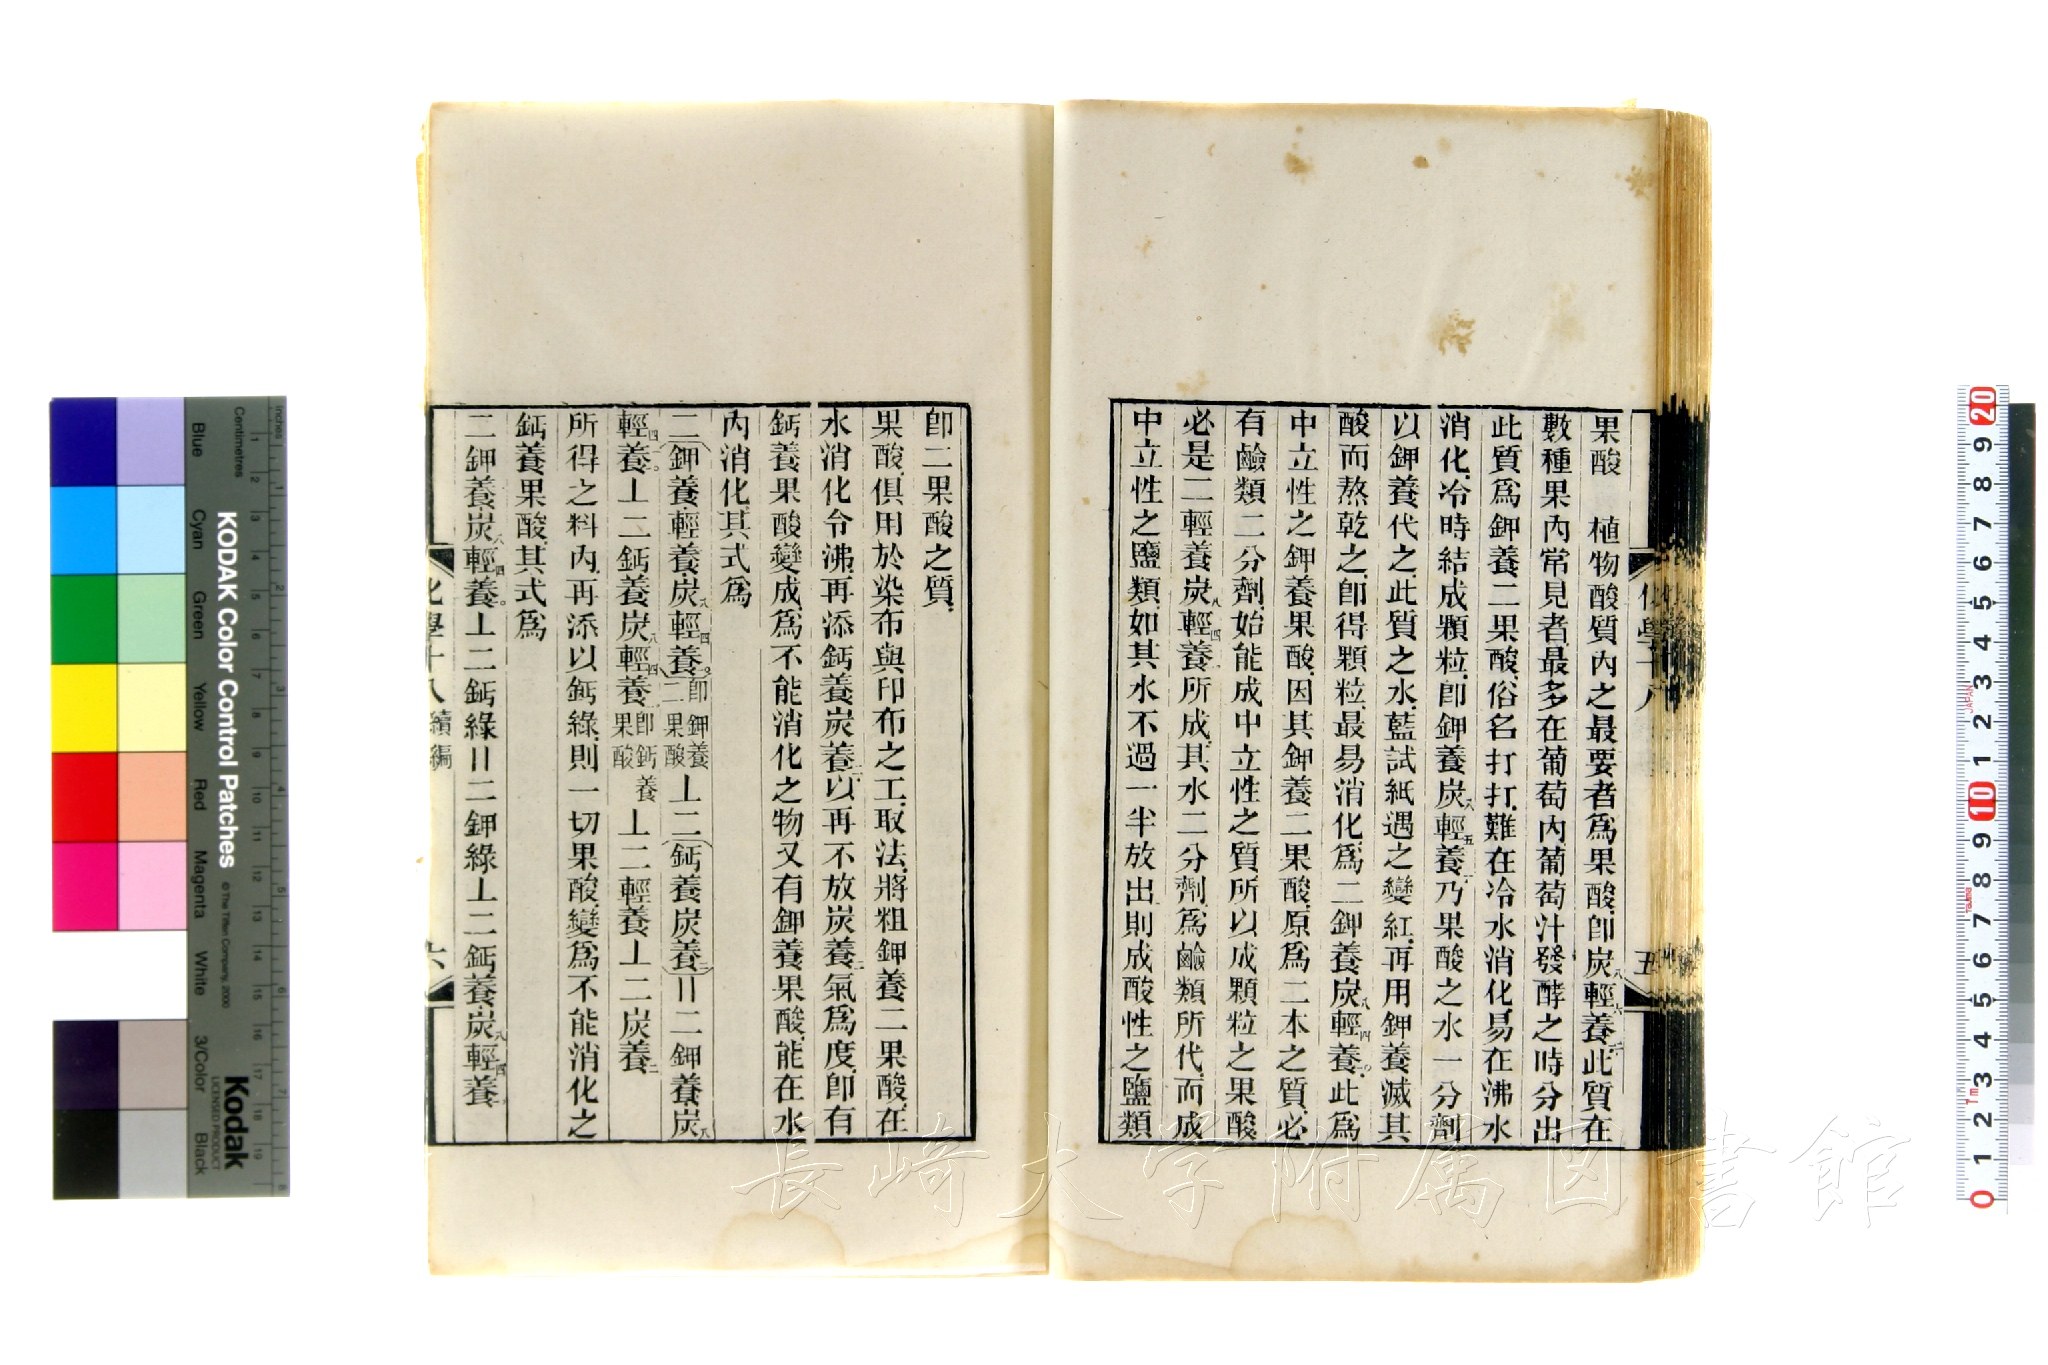 果酸　植物酸質內之最要者爲果酸卽炭八輕六養一二此質在
數種果內常見者最多在葡萄內葡萄汁發酵之時分出
此質爲鉀養二果酸俗名打打難在冷水消化易在沸水
消化冷時結成顆粒卽鉀養炭八輕五養一一乃果酸之水一分劑
以鉀養代之此質之水藍試紙遇之變紅再用鉀養滅其
酸而熬乾之卽得顆粒最易消化爲二鉀養炭八輕四養一〇此爲
中立性之鉀養果酸因其鉀養二果酸原爲二本之質必
有鹼類二分劑始能成中立性之質所以成顆粒之果酸
必是二輕養炭八輕四養一〇所成其水二分劑爲鹼類所代而成
中立性之鹽類如其水不過一半放出則成酸性之鹽類
化學十八
五
卽二果酸之質
果酸俱用於染布與印布之工取法將粗鉀養二果酸在
水消化令沸再添鈣養炭養二以再不放炭養二氣爲度卽有
鈣養果酸變成爲不能消化之物又有鉀養果酸能在水
內消化其式爲
二(鉀養輕養炭八輕四養一〇)卽鉀養二果酸⊥二(鈣養炭養二)=二鉀養炭八
輕四養一〇⊥二鈣養炭八輕四養一〇卽鈣養果酸⊥二輕養⊥二炭養二
所得之料內再添以鈣綠則一切果酸變爲不能消化之
鈣養果酸其式爲
二鉀養炭八輕四養一〇⊥二鈣綠=二鉀綠⊥二鈣養炭八輕四養一〇
化學十八 續編
六
長崎大学附属図書館
KODAK Color Control Patches
© The Tiffen Company, 2000
Kodak
LICENSED PRODUCT
Inches
Centimetres
Blue
Cyan
Green
Yellow
Red
Magenta
White
3/Color
Black